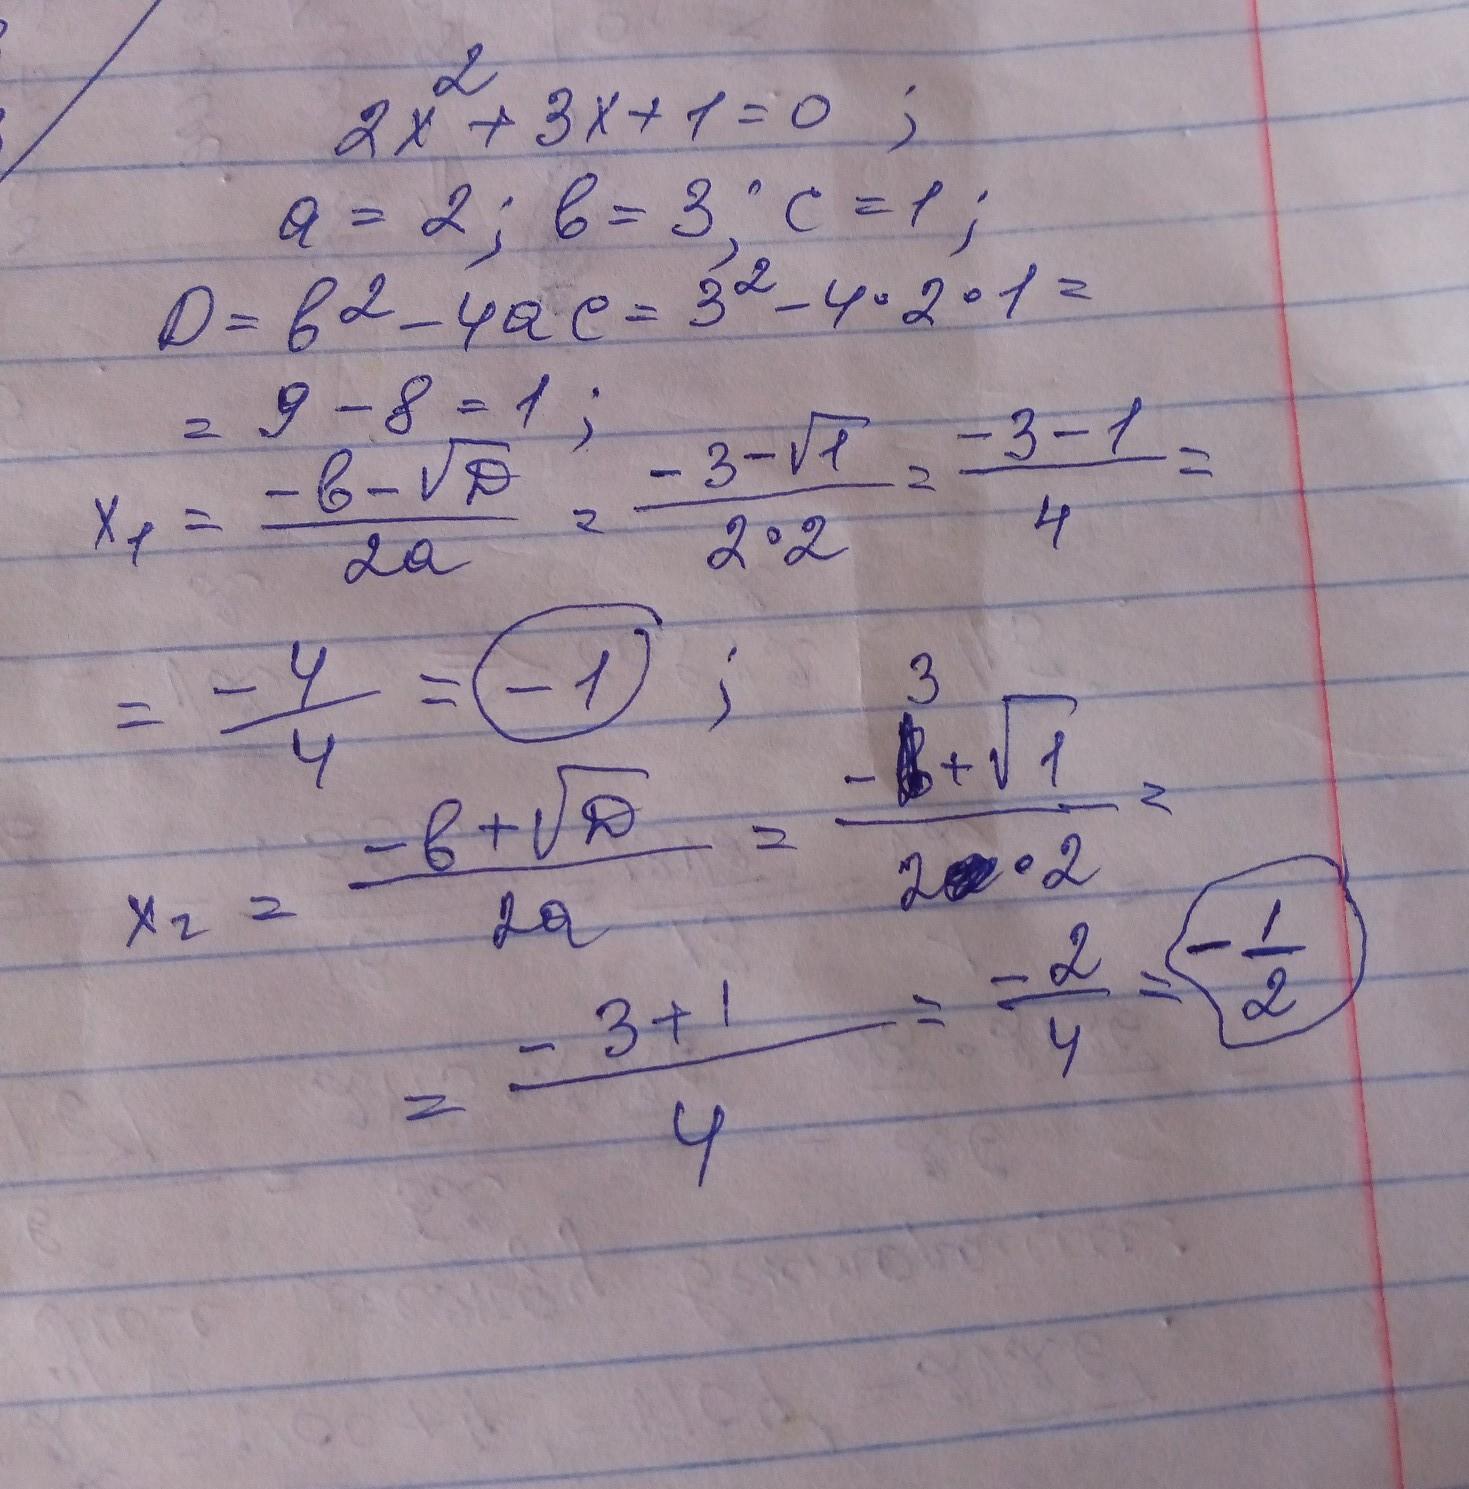 2x² + 3x + 1 = 0 ;
a = 2; b = 3; c = 1;
D = b² - 4ac = 3² - 4·2·1 =
= 9 - 8 = 1 ;
x₁ = (-b - √D)/(2a) = (-3 - √1)/(2·2) = (-3 - 1)/4 =
= -4/4 = -1 ;
x₂ = (-b + √D)/(2a) = (-3 + √1)/(2·2) =
= (-3 + 1)/4 = -2/4 = -1/2